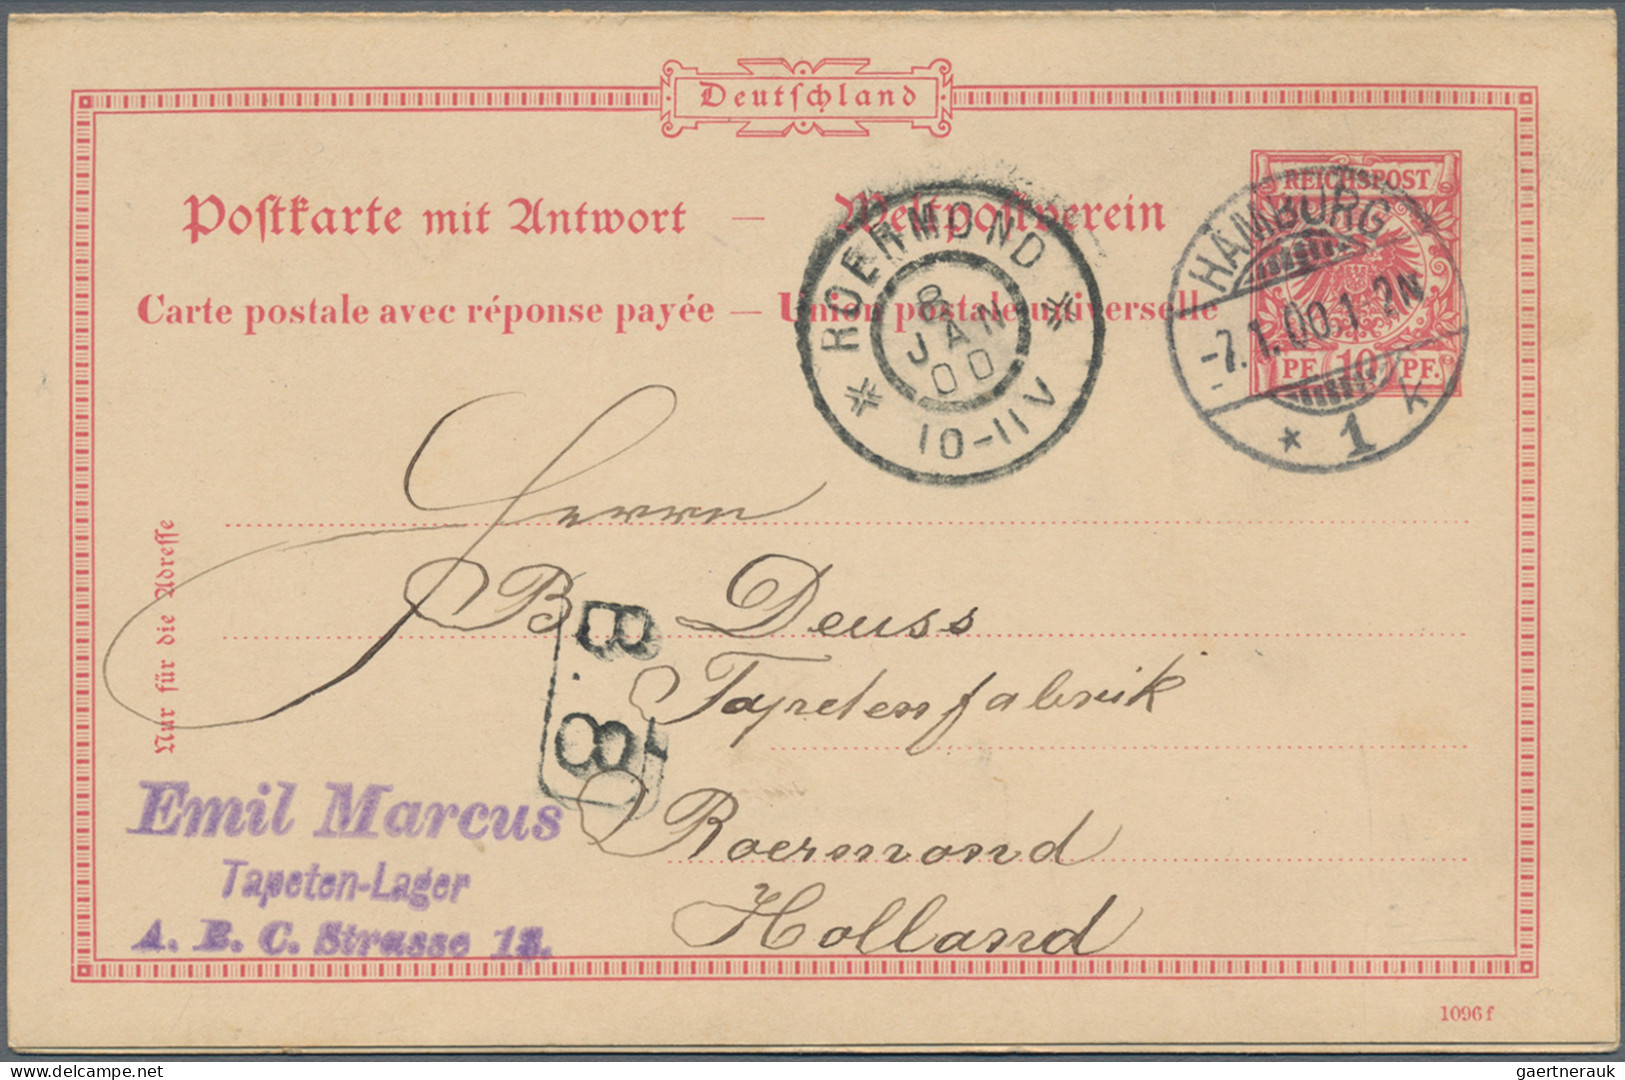 Deutschland
Postkarte mit Antwort — Weltpostverein
Carte postale avec réponse payée — Union postale universelle
REICHSPOST
PF. 10 PF.
HAMBURG
-7.1.00.1-2N
* 1 k
ROERMOND
8
JAN
00
10-11V
Nur für die Adresse
Herrn
B. Deuss
Tapetenfabrik
Roermond
Holland
B. 18
Emil Marcus
Tapeten-Lager
A. B. C. Strasse 18.
1096 f
gaertnerauk